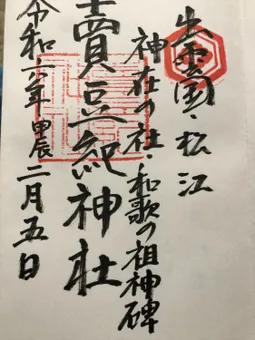 出雲國・松江
神在の社・和歌の祖神碑
賣豆紀神社
令和六年 甲辰 二月五日